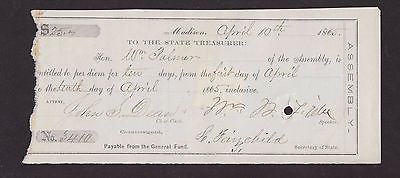 Madison, April 10th 1865.
TO THE STATE TREASURER:
Hon. Wm Palmer of the Assembly, is
entitled to per diem for ten days, from the first day of April
to the tenth day of April 1865, inclusive.
ATTEST:
John S. Dean Wm W. Field
Chief Clerk. Speaker.
Countersigned, L. Fairchild
No. 3410 Secretary of State.
Payable from the General Fund.
ASSEMBLY.